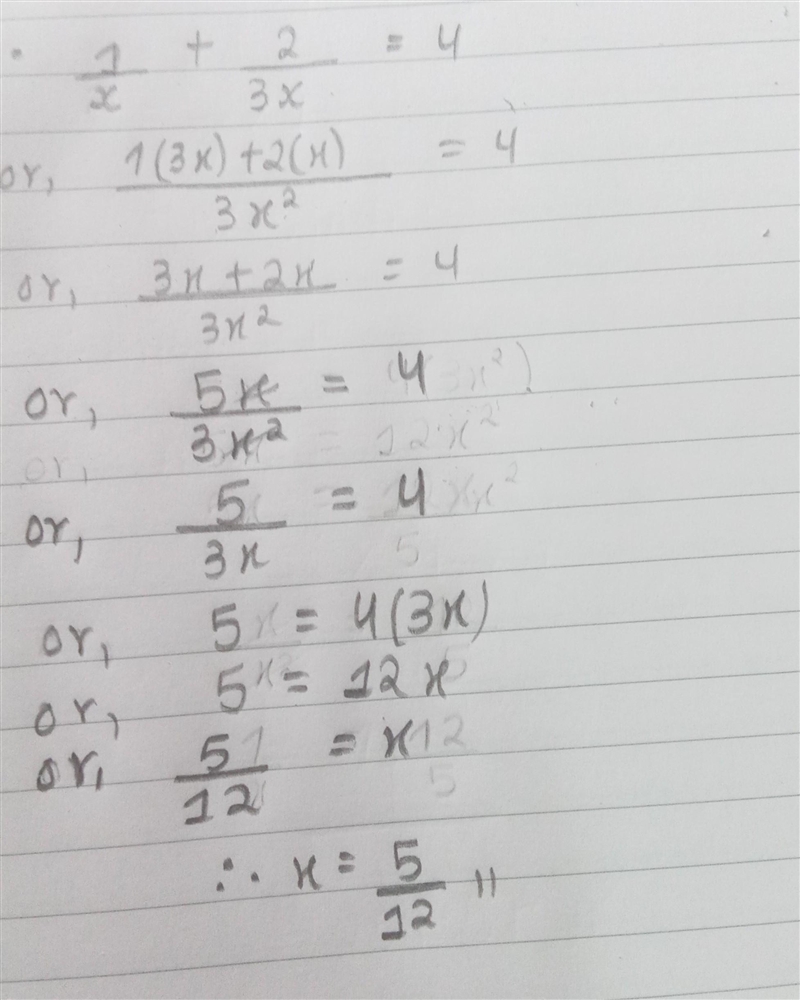 1/x + 2/3x = 4
or, 1(3x)+2(x)/3x² = 4
or, 3x+2x/3x² = 4
or, 5x/3x² = 4
or, 5/3x = 4
or, 5 = 4(3x)
or, 5 = 12x
or, 5/12 = x
∴ x = 5/12 "